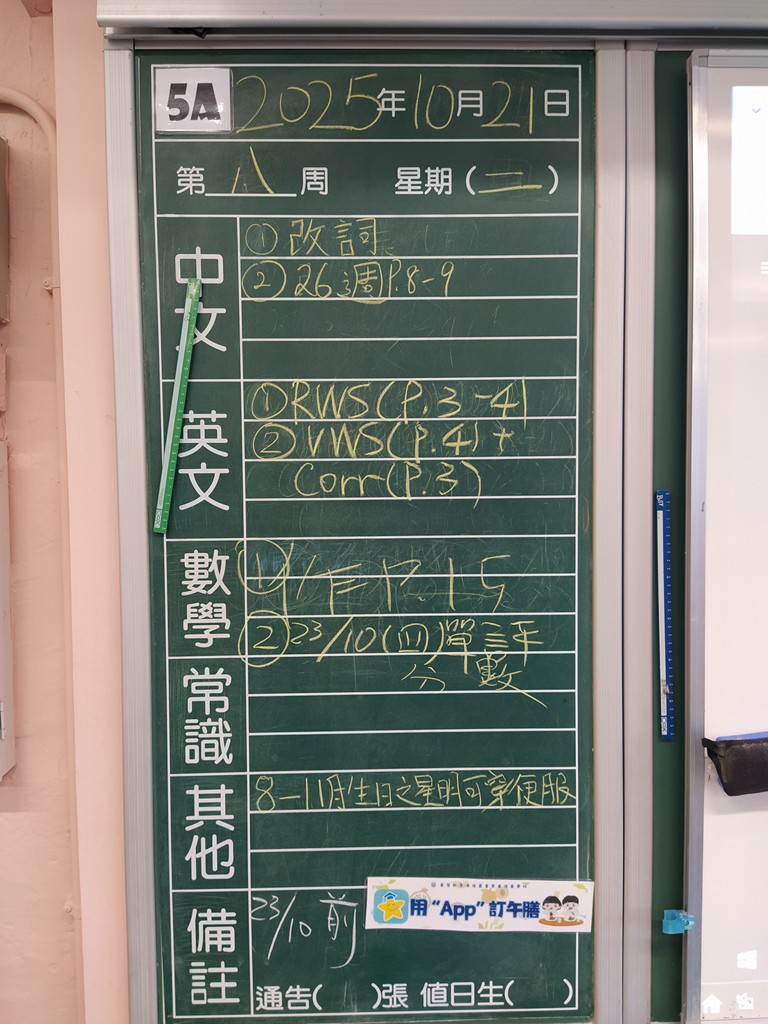 5A 2025年10月21日
第八周 星期(二)
中文
①改詞
②26週P.8-9
英文
①RWS(P.3-4)
②VWS(P.4)+
Corr(P.3)
數學
①作P.15
②23/10(四)單評
分數
常識
其他
8-11月生日之星明可穿便服
備註
23/10前
用“App”訂午膳
通告( )張 值日生( )